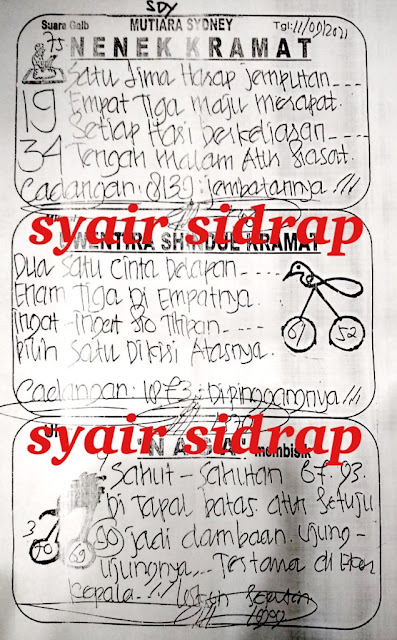 SDY
Suara Gaib MUTIARA SYDNEY Tgl: 11/09/2021
75
NENEK KRAMAT
Satu Lima Harap jemputan ----
19 Empat Tiga maju merapat.
Setiap Hari berkeliaran ----
34 Tengah malam Atur siasat.
Cadangan: 8139: jembatannya !!!
syair sidrap
KRAMAT
Dua Satu Cinta Delapan ----
Enam Tiga Di Empatnya.
ingat-ingat Tilipan ----
pilih Satu Dikiri Atasnya.
61 52
Cadangan: 1873: Dipinggangnya !!!
syair sidrap
membisik
Sahut-Sahutan 67.93.
Di Tapal batas atur Setuju
90 jadi dambaan. Ujung-
3 70 69
ujungnya... Tertama di
kepala. !!!